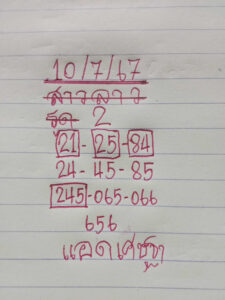 10/7/67
สาวลาว
รัด 2
21-25-84
24-45-85
245-065-066
656